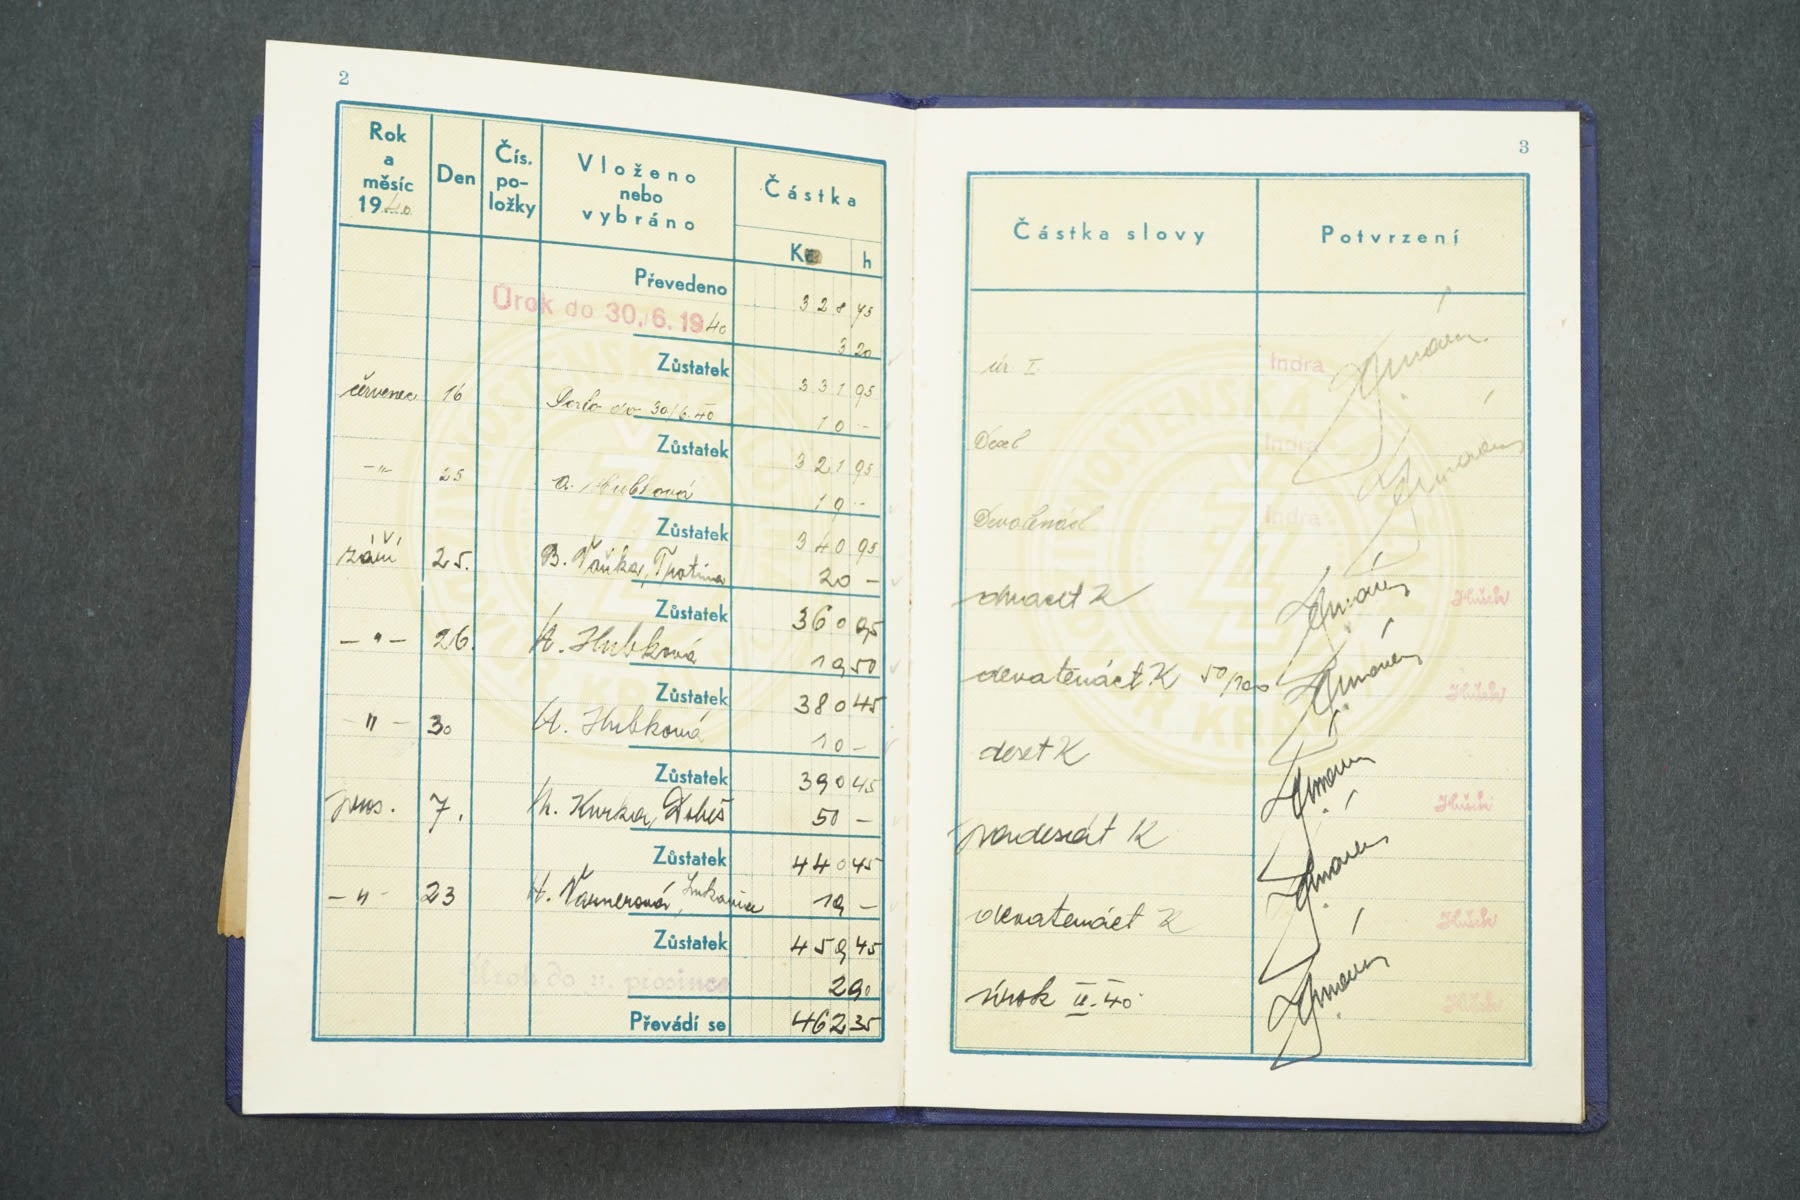 2
Rok a měsíc 1940
Den
Čís. po- ložky
Vloženo nebo vybráno
Částka
K h
Převedeno 328 75
Úrok do 30./6. 1940 3 20
Zůstatek 331 95
červenec 16 Porto do 30/6.40 10 -
Zůstatek 321 95
-"- 25 A. Hubková 19 -
Zůstatek 340 95
září 25. B. Vaňka, Trotina 20 -
Zůstatek 360 95
-"- 26. A. Hubková 19 50
Zůstatek 380 45
-"- 30 A. Hubková 10 -
Zůstatek 390 45
pros. 7. Kurka, 50 -
Zůstatek 440 45
-"- 23 19 -
Zůstatek 459 45
Úrok do 31. prosince 2 90
Převádí se 462 35
3
Částka slovy
Potvrzení
úr. I. Indra
Deset Indra
Devatenáct Indra
dvacet K
devatenáct K 50/100
deset K
padesát K
devatenáct K
úrok II. 40